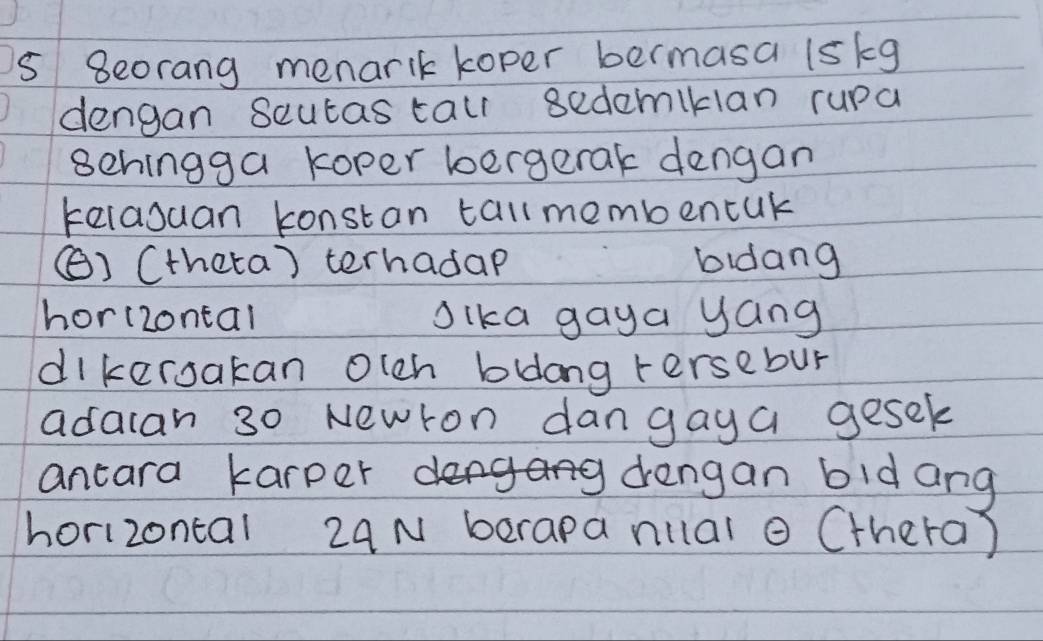 5 Seorang menarik koper bermasa 15kg
dengan Seutas tali sedemikian rupa
sehingga koper bergerak dengan
kelajuan konstan tali membentuk
(θ) (theta) terhadap bidang
horizontal Jika gaya yang
dikerjakan oleh bidang tersebut
adalah 30 Newton dan gaya gesek
antara karper dengang dengan bidang
horizontal 29 N berapa nilai θ (theta)